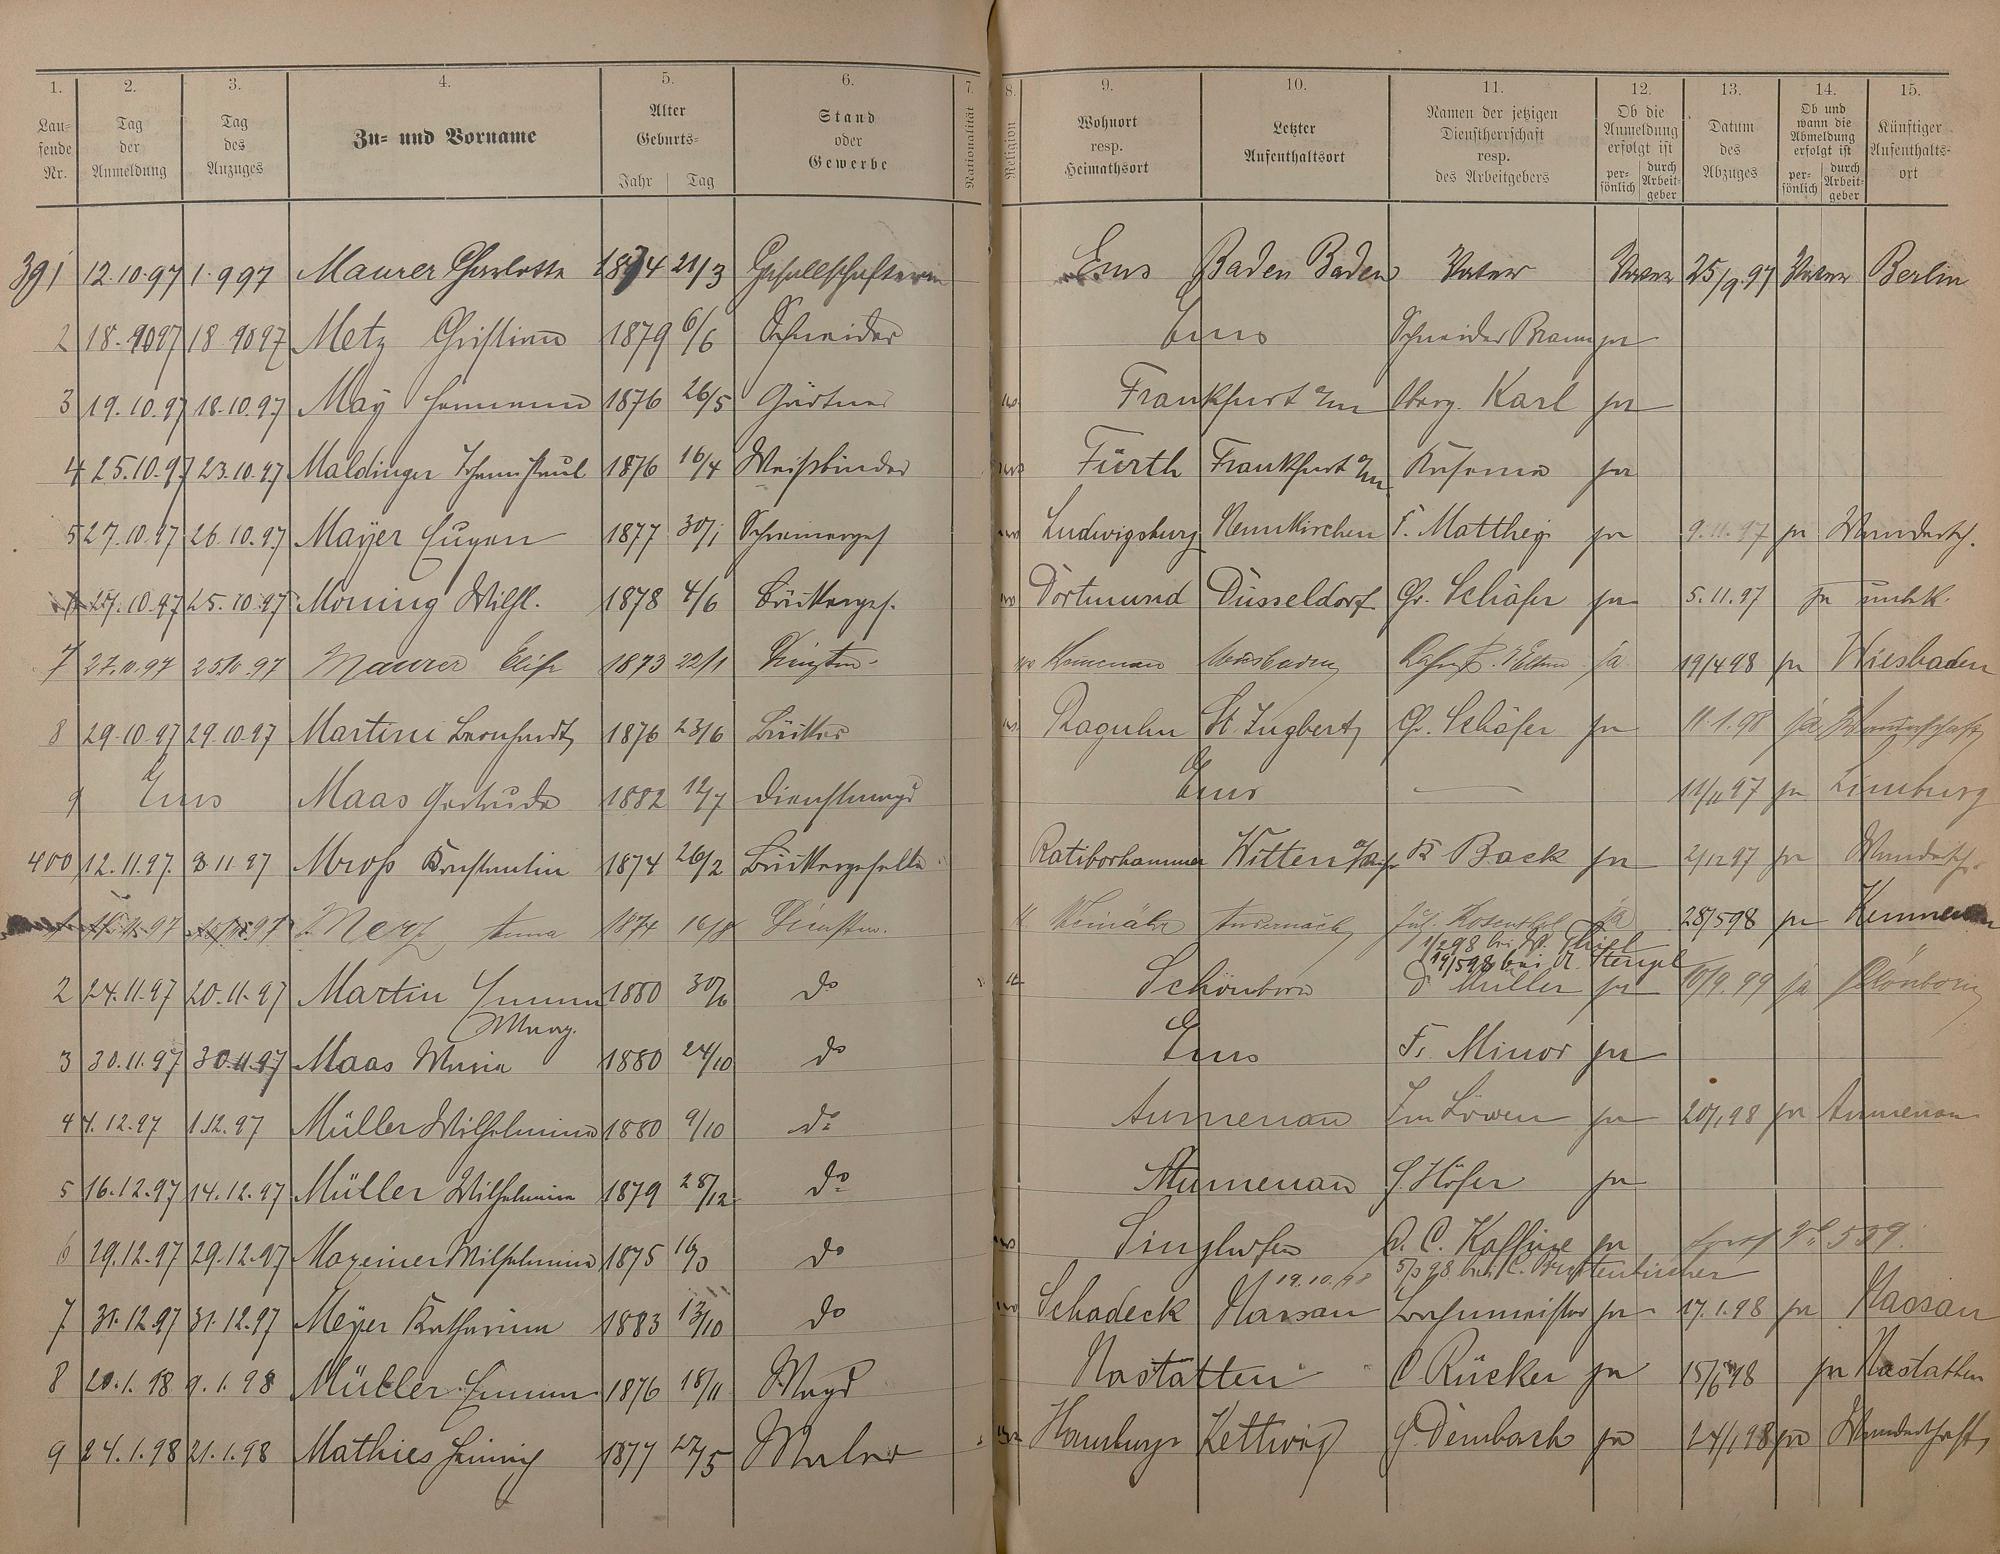 1. 2. 3. 4. 5. 6. 7. 8. 9. 10. 11. 12. 13. 14. 15.
Laufende Nr. Tag der Anmeldung Tag des Anzuges Zu- und Vorname Alter Geburts- Jahr Tag Stand oder Gewerbe Nationalität Religion Wohnort resp. Heimathsort Letzter Aufenthaltsort Namen der jetzigen Dienstherrschaft resp. des Arbeitgebers Ob die Anmeldung erfolgt ist persönlich durch Arbeitgeber Datum des Abzuges Ob und wann die Abmeldung erfolgt ist persönlich durch Arbeitgeber Künftiger Aufenthaltsort
391 12.10.97 1.9 97 Maurer Charlotte 1874 21/3 Gesellschafterin Ems Baden Baden Vater Vater 25/9.97 Vater Berlin
2 18.1097 18 1097 Metz Christian 1879 6/6 Schneider Ems Schneider Braun ja
3 19.10.97 18.10.97 May Hermann 1876 26/5 Gärtner Frankfurt a/m Karl ja
4 25.10.97 23.10.97 Maldinger Johann Paul 1876 16/4 Weißbinder Fürth Frankfurt a/m ja
5 27.10.97 26.10.97 Mayer Eugen 1877 30/1 Schreinerges Ludwigsburg Neunkirchen F. Matthey ja 9.11.97 ja Wandersch.
27.10.97 25.10.97 Moning Wilh. 1878 4/6 Bäckerges. Dortmund Düsseldorf Gr. Schäfer ja 5.11.97 ja unbek.
7 27.10.97 25.10.97 Maurer Elise 1873 22/1 Dienstm. Wiesbaden ja 19/4 98 ja Wiesbaden
8 29.10.97 29.10.97 Martini Bernhardt 1876 23/6 Bäcker Raguhn St. Ingbert Gr. Schäfer ja 11.1.98 ja Wanderschaft
9 Ems Maas Gertrude 1882 12/7 Dienstmagd Ems — 11/11 97 ja Limburg
400 12.11.97. 8 11 97 Mroß Konstantin 1874 26/2 Bäckergeselle Ratiborhammer Witten a/Ruhr K Back ja 2/12 97 ja Wandersch.
97 97 Merz Anna 1874 16/8 Dienstm. Weinähr Andernach Jul. Rosenthal ja 28/5 98 ja Kemmenau
1/2 98 bei Thiel
19/5 98 bei A. Stengel
2 24.11.97 20.11.97 Martin Emma 1880 30/6 do Schönborn D Müller ja 10/9.99 ja Schönborn
Marg.
3 30.11.97 30.11.97 Maas Maria 1880 24/10 do Ems Fr. Minor ja
4 4.12.97 1.12.97 Müller Wilhelmine 1880 9/10 do Aumenau Im Löwen ja 20/1 98 ja Aumenau
5 16.12.97 14.12.97 Müller Wilhelmine 1879 28/12 do Aumenau G. Höfer ja
6 29.12.97 29.12.97 Mareiner Wilhelmine 1875 do Singhofen D. C. Kaffine ja 539.
19.10.98 5/3 98 bei C.
7 31.12.97 31.12.97 Meyer Katharina 1883 13/10 do Schadeck Nassau Bahnmeister ja 17.1.98 ja Nassau
8 20.1.98 9.1.98 Müller Emma 1876 18/11 Magd Nastätten C Rücker ja 15/6 98 ja Nastätten
9 24.1.98 21.1.98 Mathies Heinrich 1877 27/5 Maler Hamburg Kettwig G. Dembach ja 24/1 98 ja Wanderschaft